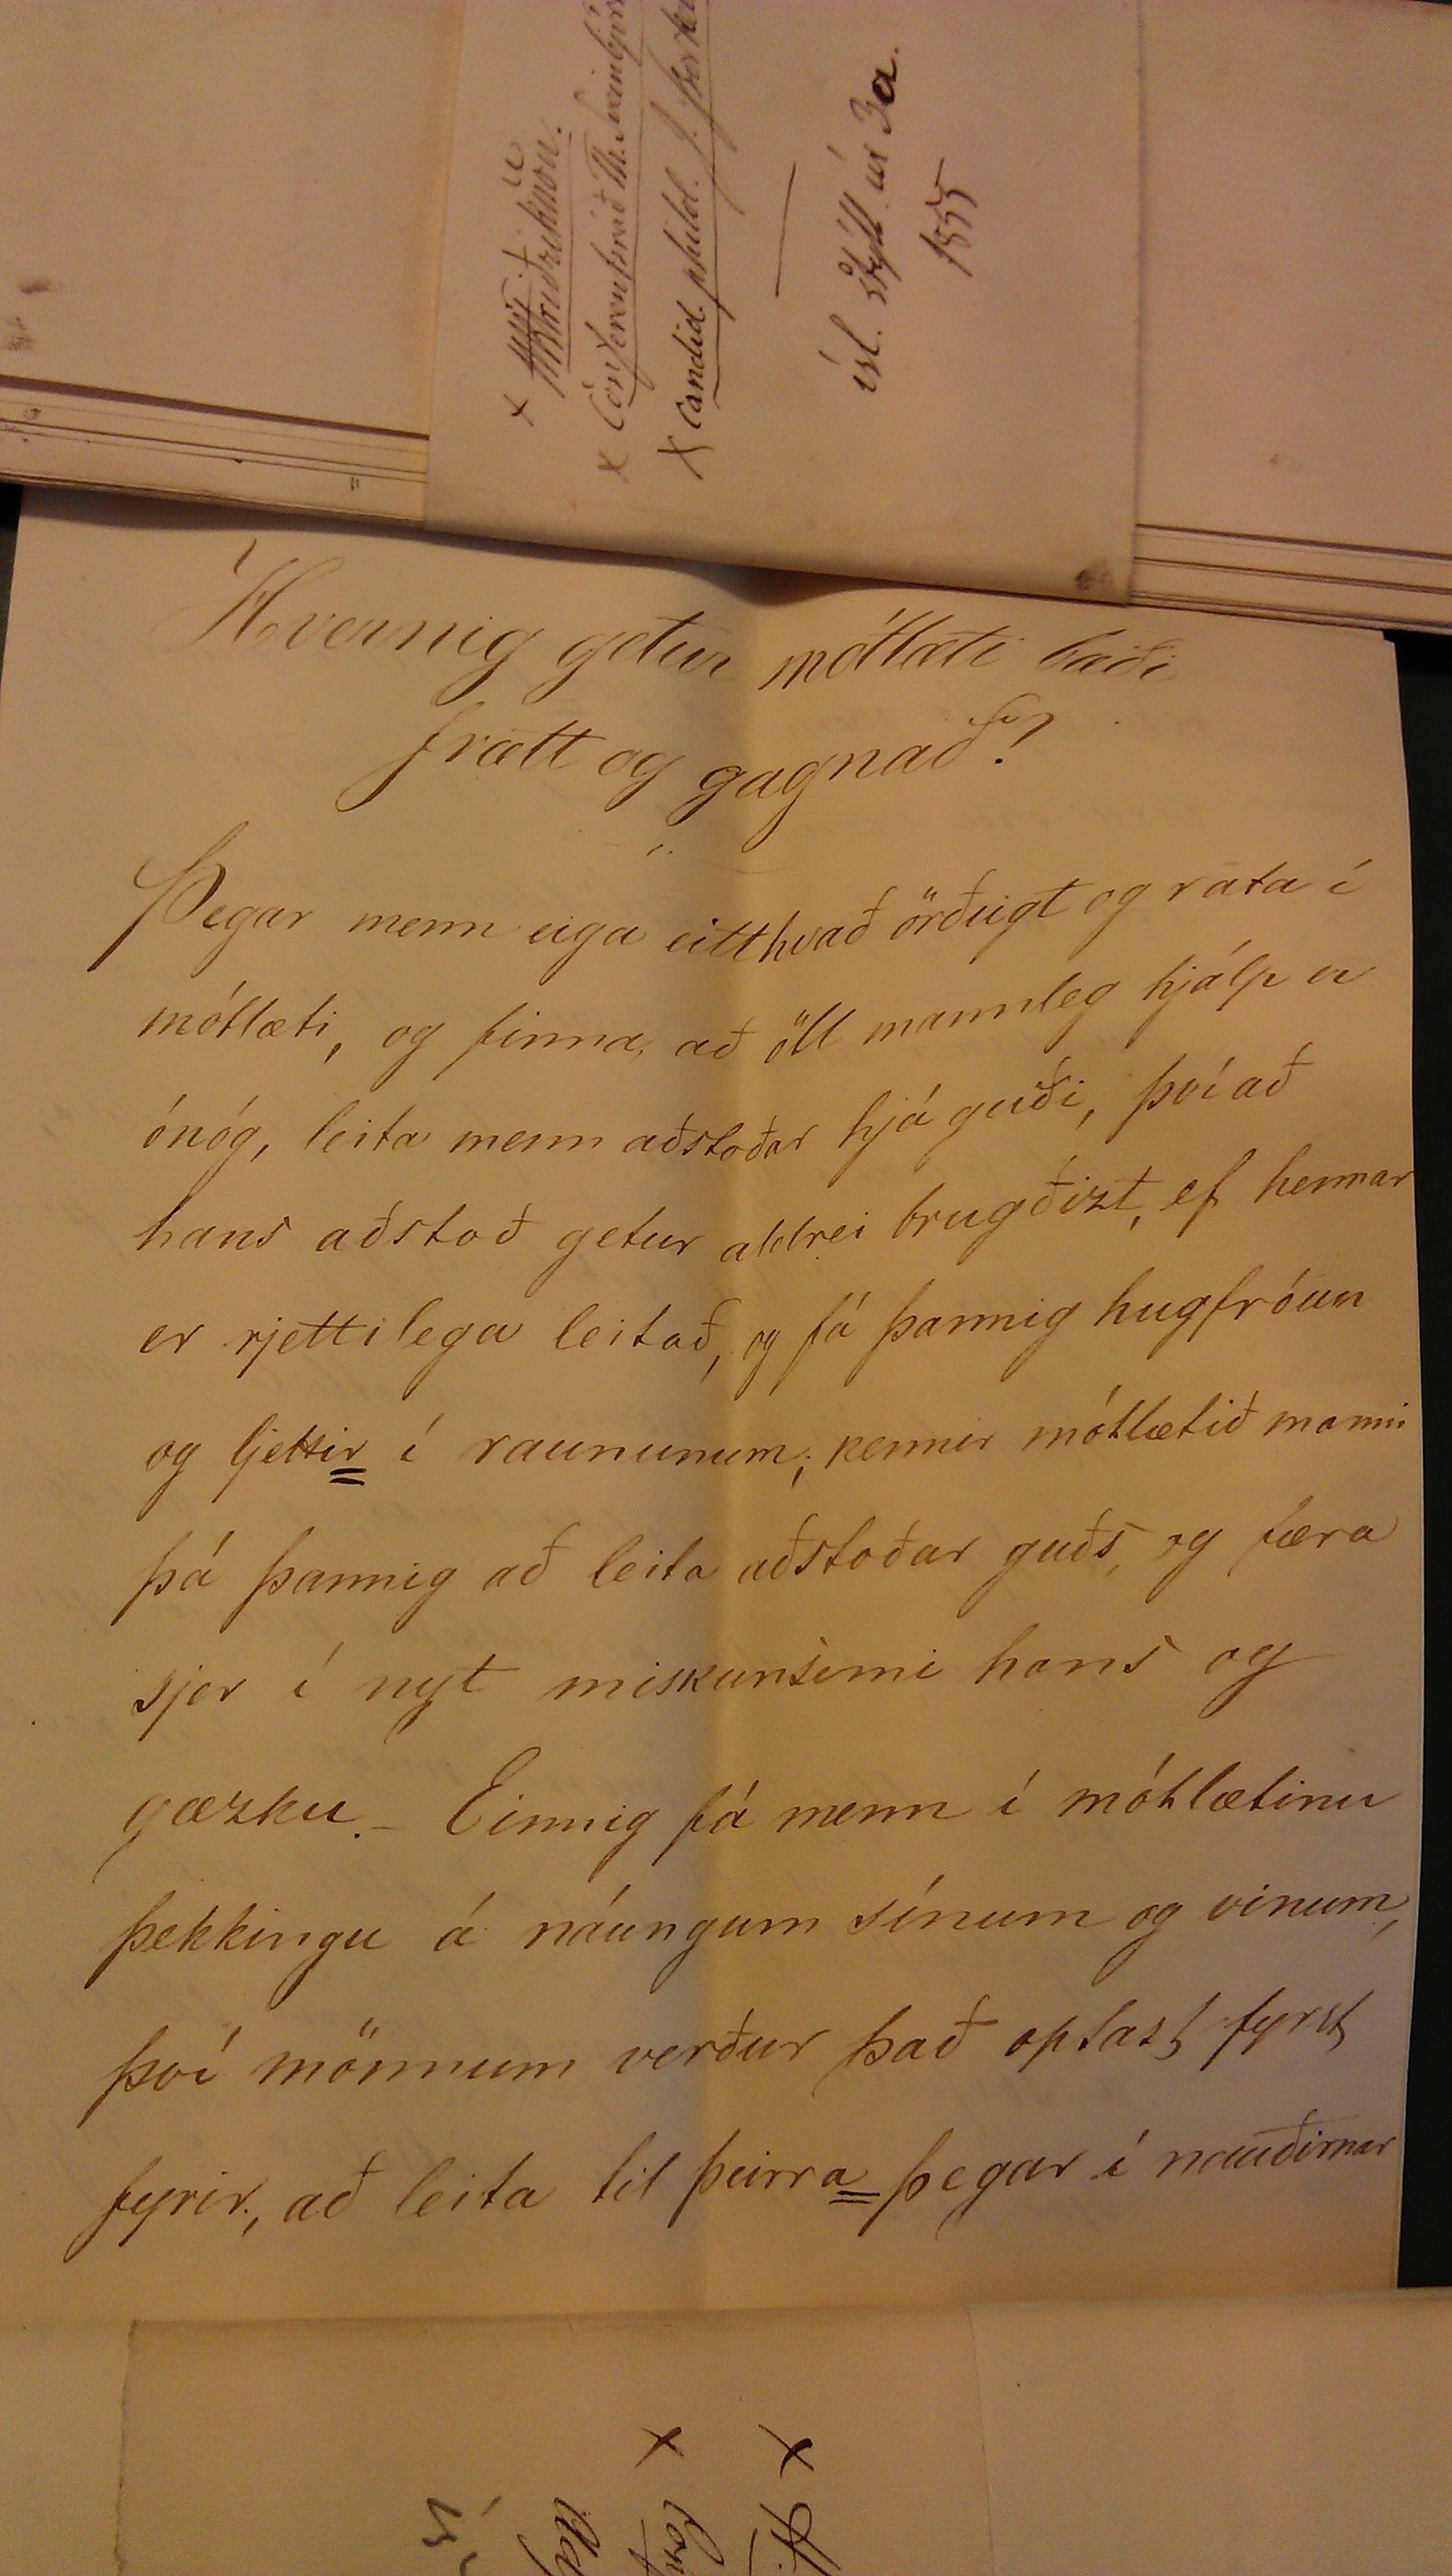 × H. Kr. Friðriksson.
× Conferensráð Th. Sveinbjörn
× Candid. philol. J. Þorkel
ísl. stýll úr 3a.
1855
Hvernig getur mótlæti bæði
frætt og gagnað?
Þegar menn eiga eitthvað örðugt og rata í
mótlæti, og finna, að öll mannleg hjálp er
ónóg, leita menn aðstoðar hjá guði, því að
hans aðstoð getur aldrei brugðizt, ef hennar
er rjettilega leitað, og fá þannig hugfróun
og ljettir í raununum; kennir mótlætið manni
þá þannig að leita aðstoðar guðs, og færa
sjer í nyt miskunsemi hans og
gæzku. – Einnig fá menn í mótlætinu
þekkingu á náungum sínum og vinum,
því mönnum verður það optast fyrst
fyrir, að leita til þeirra þegar í nauðirnar
×
×